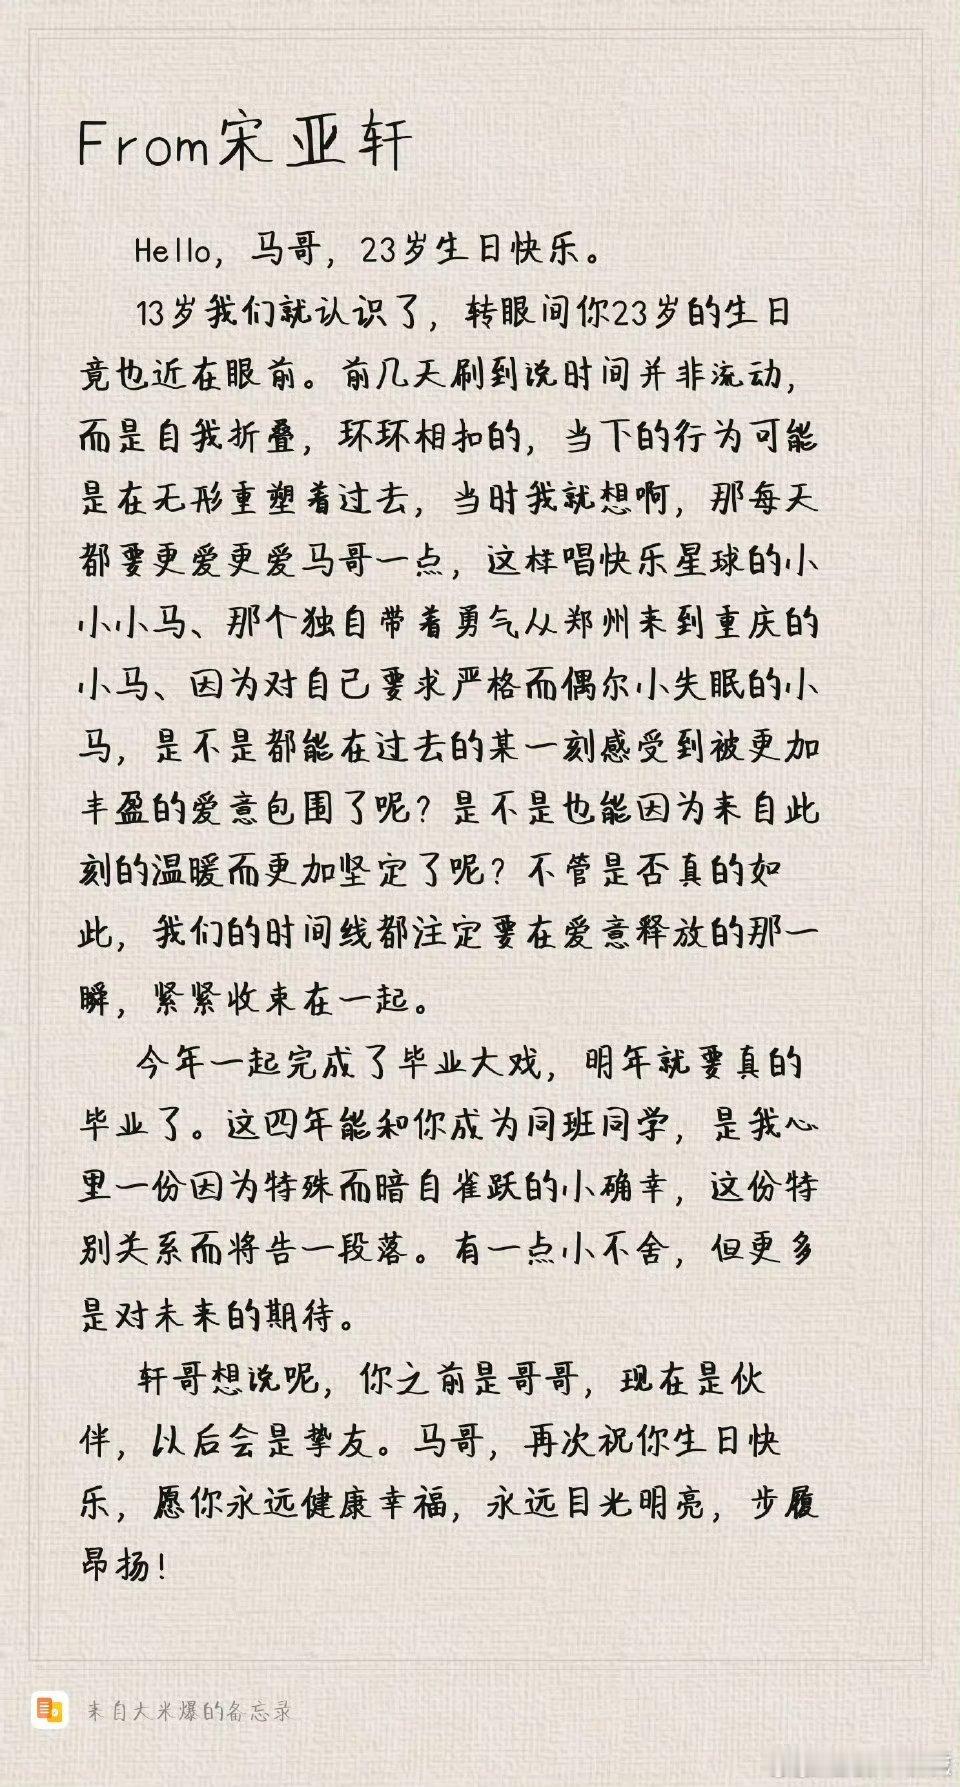 From宋亚轩
Hello，马哥，23岁生日快乐。
13岁我们就认识了，转眼间你23岁的生日
竟也近在眼前。前几天刷到说时间并非流动，
而是自我折叠，环环相扣的，当下的行为可能
是在无形重塑着过去，当时我就想啊，那每天
都要更爱更爱马哥一点，这样唱快乐星球的小
小小马、那个独自带着勇气从郑州来到重庆的
小马、因为对自己要求严格而偶尔小失眠的小
马，是不是都能在过去的某一刻感受到被更加
丰盈的爱意包围了呢？是不是也能因为来自此
刻的温暖而更加坚定了呢？不管是否真的如
此，我们的时间线都注定要在爱意释放的那一
瞬，紧紧收束在一起。
今年一起完成了毕业大戏，明年就要真的
毕业了。这四年能和你成为同班同学，是我心
里一份因为特殊而暗自雀跃的小确幸，这份特
别关系而将告一段落。有一点小不舍，但更多
是对未来的期待。
轩哥想说呢，你之前是哥哥，现在是伙
伴，以后会是挚友。马哥，再次祝你生日快
乐，愿你永远健康幸福，永远目光明亮，步履
昂扬！
来自大米爆的备忘录